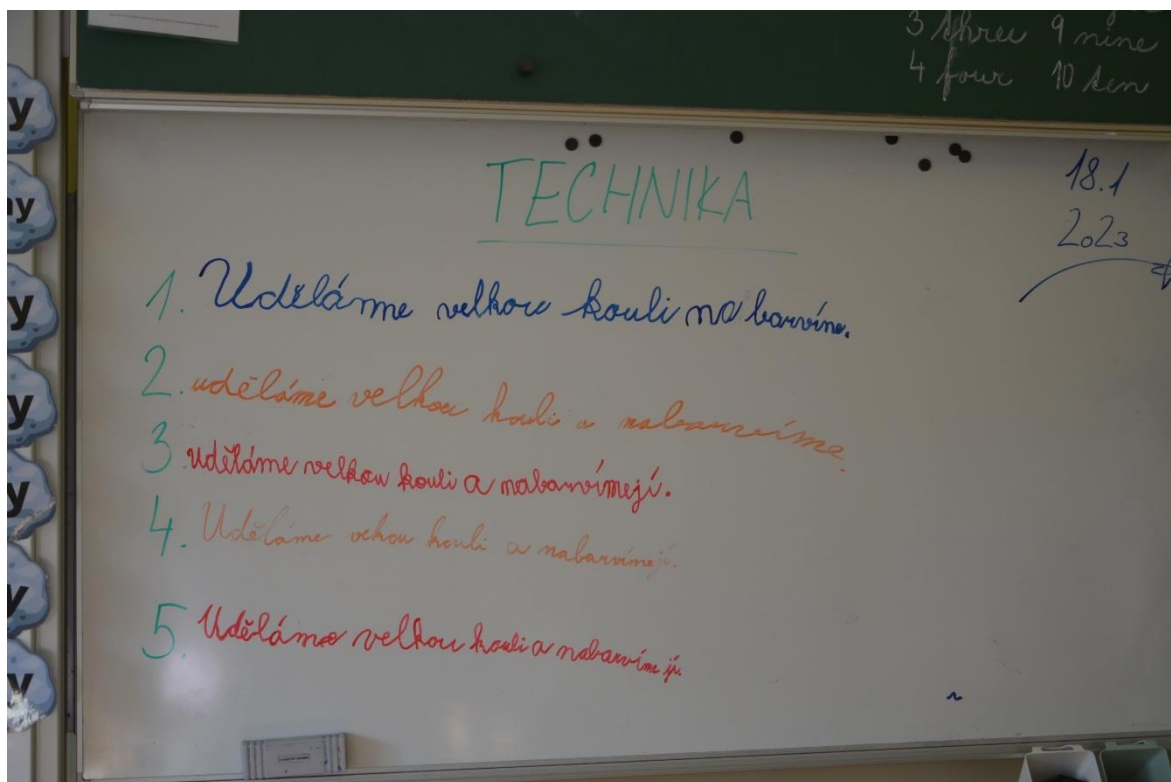 3 three 9 nine
4 four 10 ten
TECHNIKA
18.1
2023
1. Uděláme velkou kouli na barvíme.
2. uděláme velkou kouli a nabarvíme.
3 uděláme velkou kouli a nabarvímejí.
4. Uděláme vekou kouli a nabarvímejí.
5. Uděláme velkou kouli a nabarvíme jí.
y
y
y
y
y
y
y